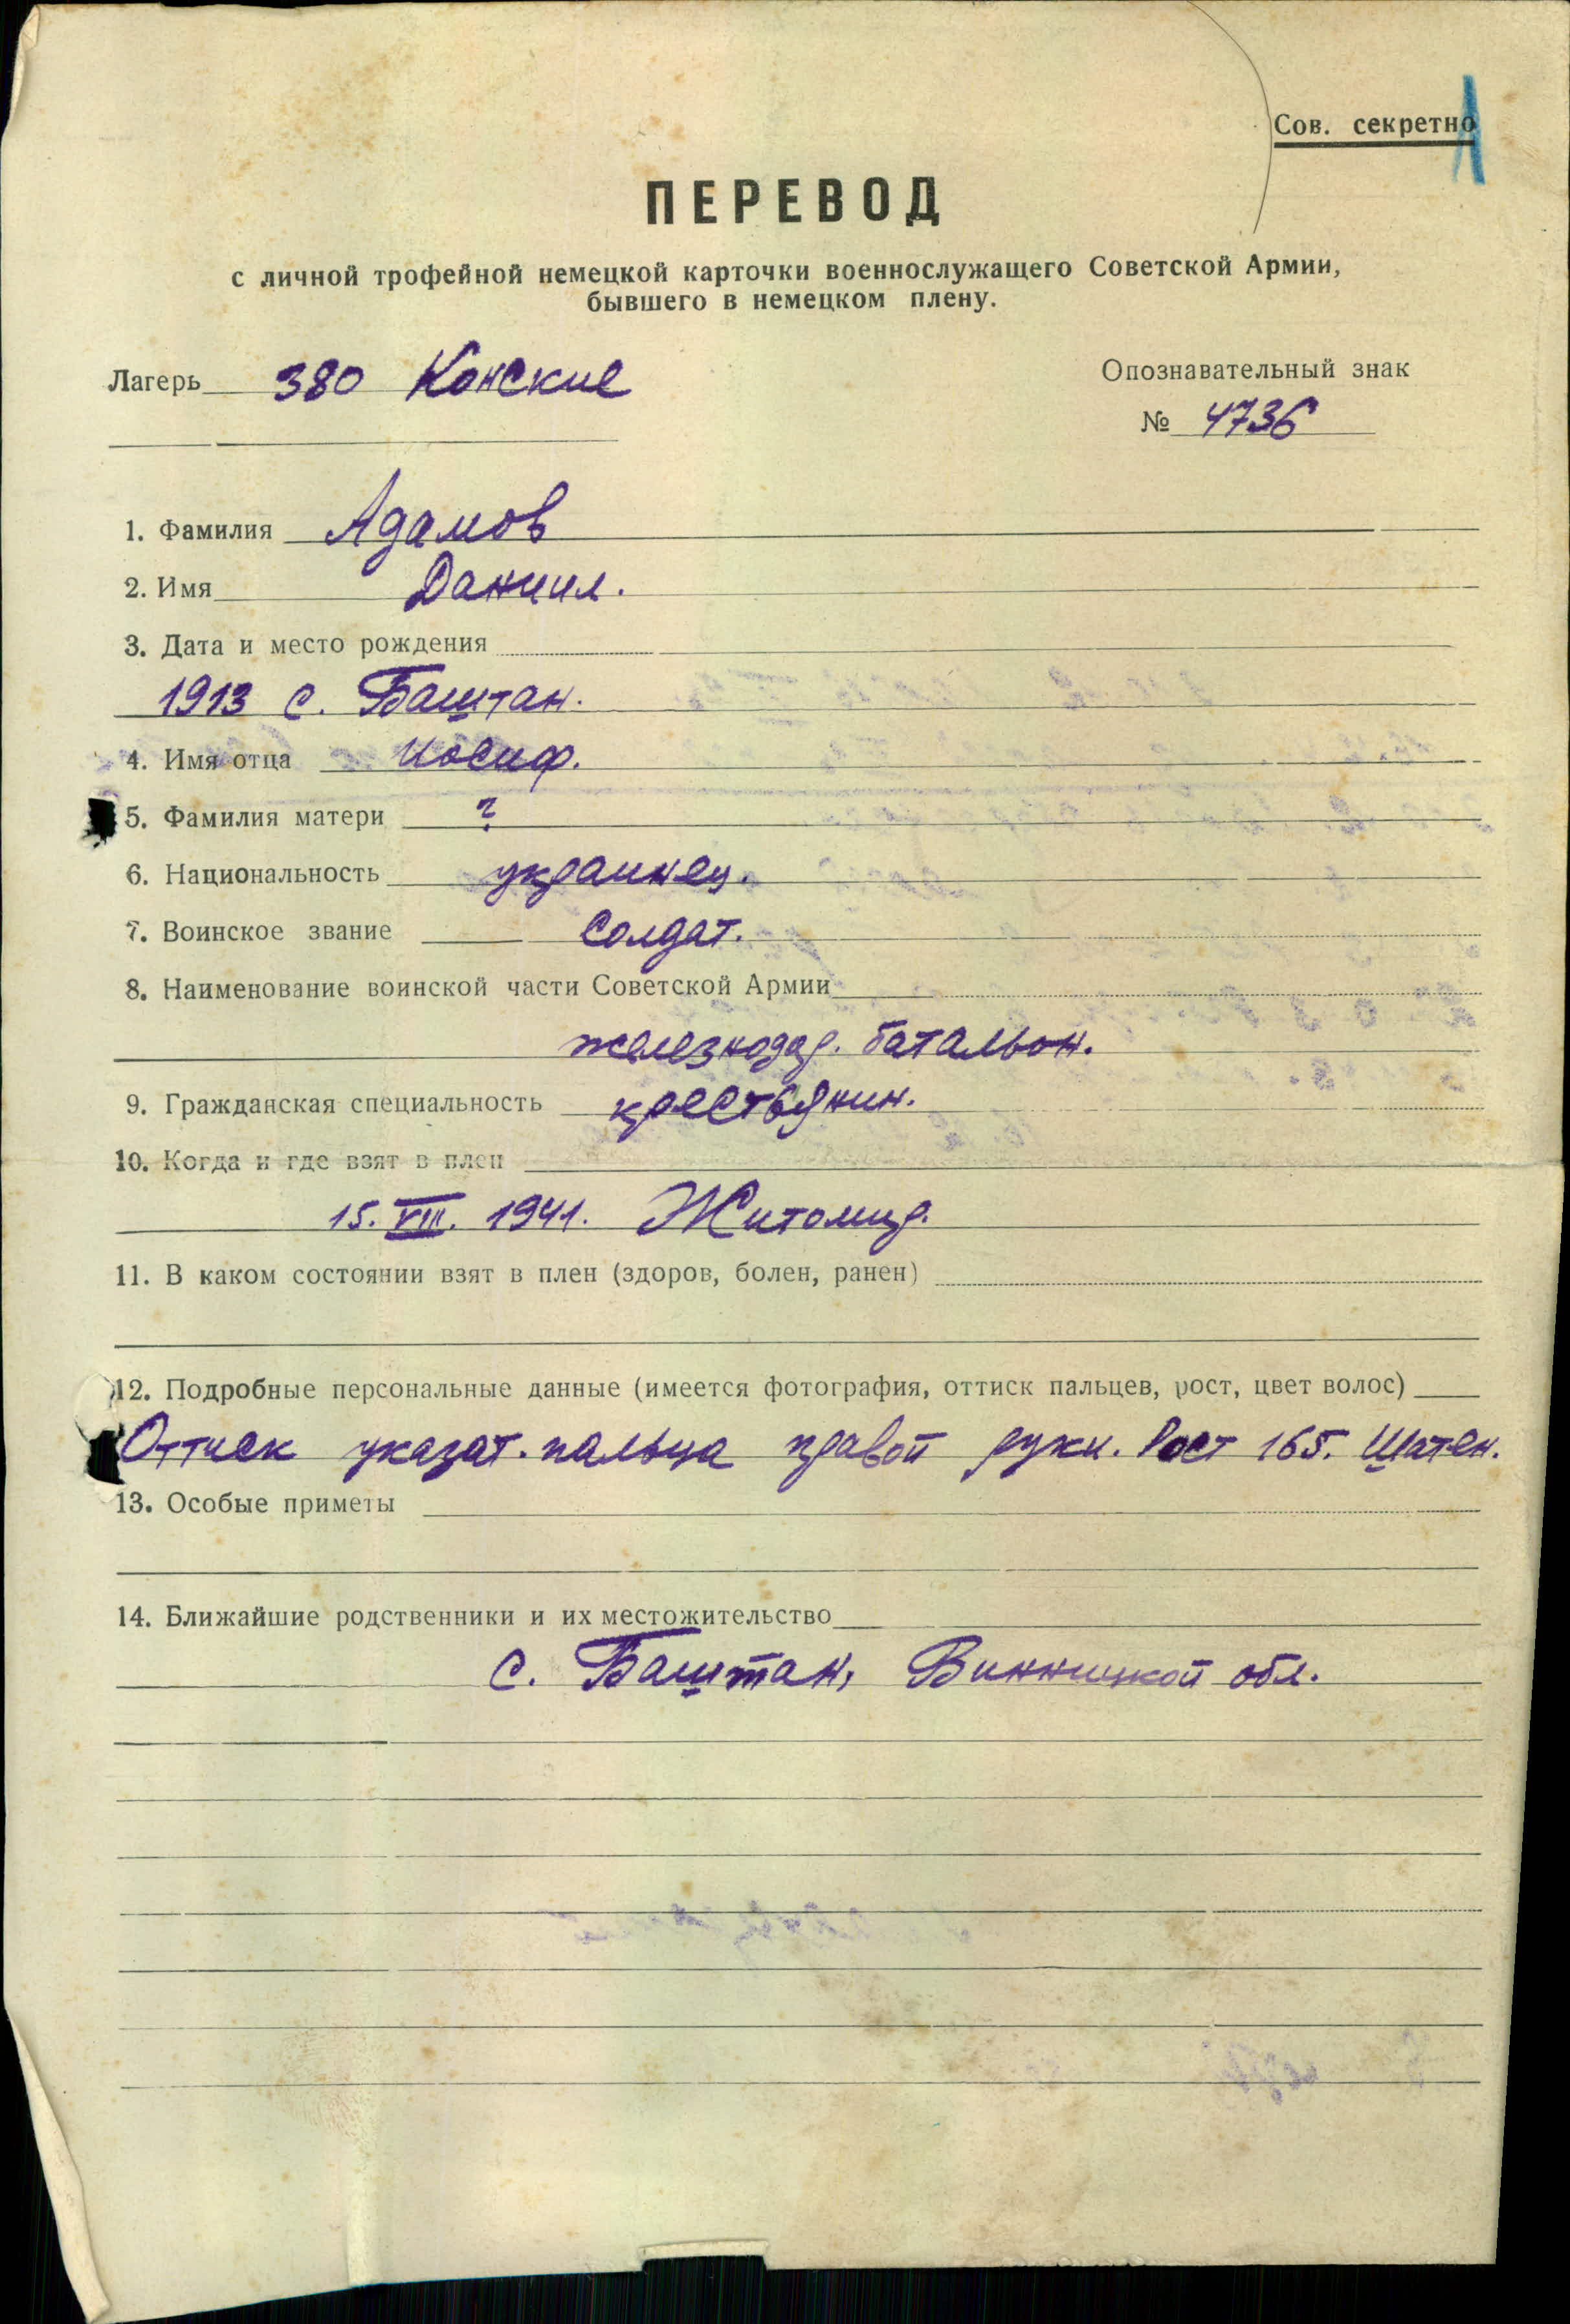 Сов. секретно
ПЕРЕВОД
с личной трофейной немецкой карточки военнослужащего Советской Армии,
бывшего в немецком плену.
Лагерь 380 Конские
Опознавательный знак
№ 4736
1. Фамилия Адамов
2. Имя Даниил.
3. Дата и место рождения
1913 с. Баштан.
4. Имя отца Иосиф.
5. Фамилия матери ?
6. Национальность украинец.
7. Воинское звание Солдат.
8. Наименование воинской части Советской Армии
железнодор. батальон.
9. Гражданская специальность крестьянин.
10. Когда и где взят в плен
15. VIII. 1941. Житомир.
11. В каком состоянии взят в плен (здоров, болен, ранен)
12. Подробные персональные данные (имеется фотография, оттиск пальцев, рост, цвет волос)
Оттиск указат. пальца правой руки. Рост 165. Шатен.
13. Особые приметы
14. Ближайшие родственники и их местожительство
с. Баштан, Винницкой обл.